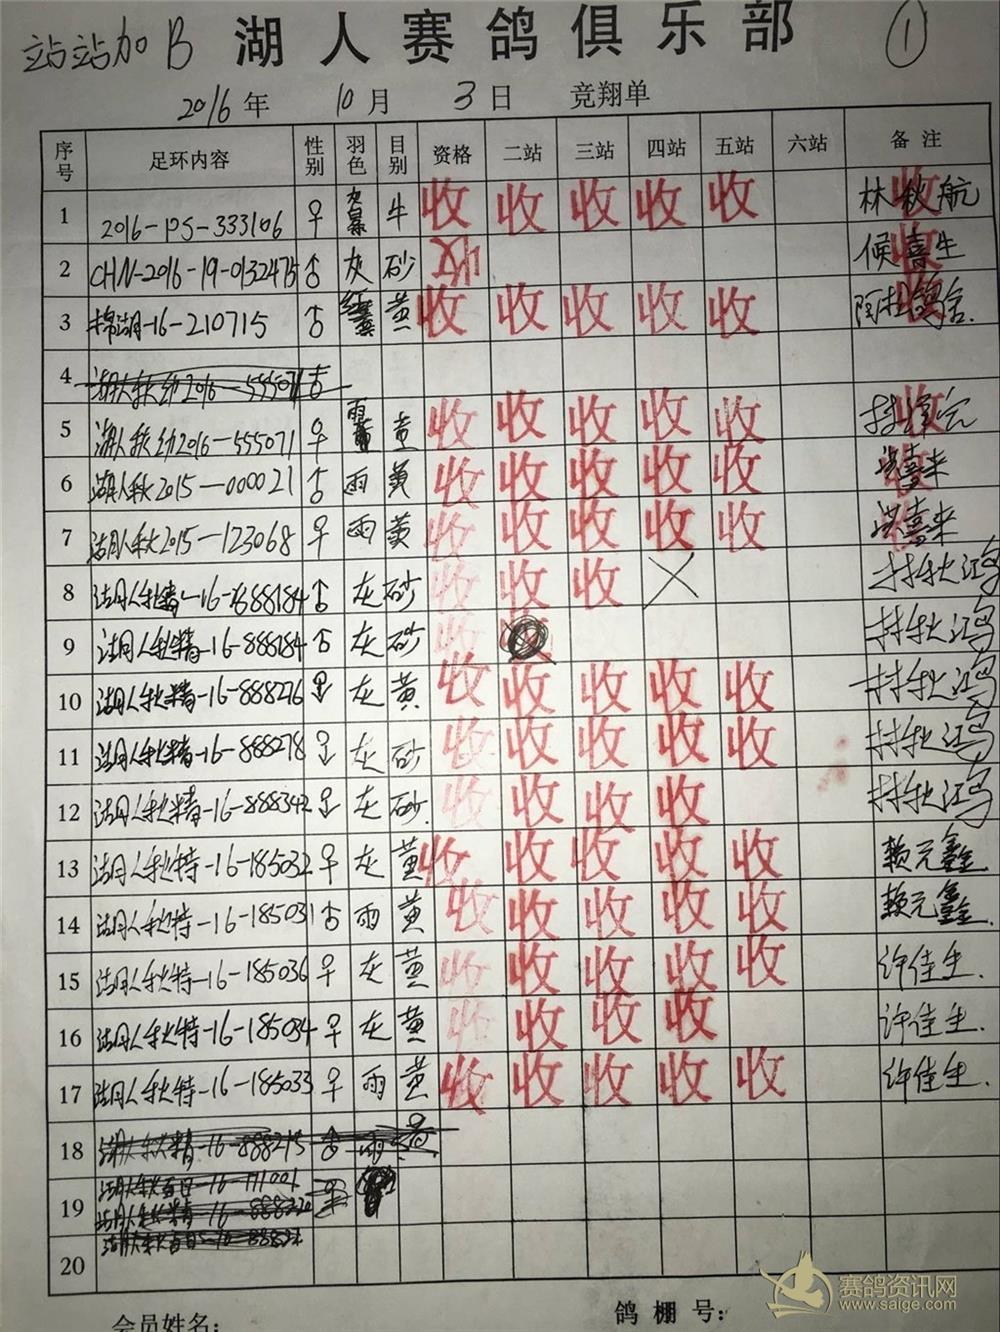 站站加B 湖人赛鸽俱乐部 ①
2016年 10月 3日 竞翔单
序号 足环内容 性别 羽色 目别 资格 二站 三站 四站 五站 六站 备注
1 2016-PS-333106 ♀ 牛 收 收 收 收 收 林秋航 收
2 CHN-2016-19-0132475 ♂ 灰 砂 收 候喜生 收
3 棉湖-16-210715 ♂ 黄 收 收 收 收 收 收
4 湖人秋幼2016-555071 ♂
5 湖人秋幼2016-555071 ♀ 黄 收 收 收 收 收 收
6 湖人秋2015-000021 ♂ 雨 黄 收 收 收 收 收 洪喜来
7 湖人秋2015-123068 ♀ 雨 黄 收 收 收 收 收 洪喜来
8 湖人秋精-16-888184 ♂ 灰 砂 收 收 收 X 林秋鸿
9 湖人秋精-16-888184 ♂ 灰 砂 收 林秋鸿
10 湖人秋精-16-888276 灰 黄 收 收 收 收 收 林秋鸿
11 湖人秋精-16-888278 ♀ 灰 砂 收 收 收 收 收 林秋鸿
12 湖人秋精-16-888342 ♀ 灰 砂. 收 收 收 收 林秋鸿
13 湖人秋特-16-185032 ♀ 灰 黄 收 收 收 收 收 赖元鑫
14 湖人秋特-16-185031 ♂ 雨 黄 收 收 收 收 收 赖元鑫.
15 湖人秋特-16-185036 ♀ 灰 黄 收 收 收 收 收 许佳生.
16 湖人秋特-16-185034 ♀ 灰 黄 收 收 收 收 许佳生.
17 湖人秋特-16-185033 ♀ 雨 黄 收 收 收 收 收 许佳生.
18 湖人秋精-16-888215 ♂ 雨
19
20
会员姓名: 鸽棚号:
赛鸽资讯网
www.saige.com